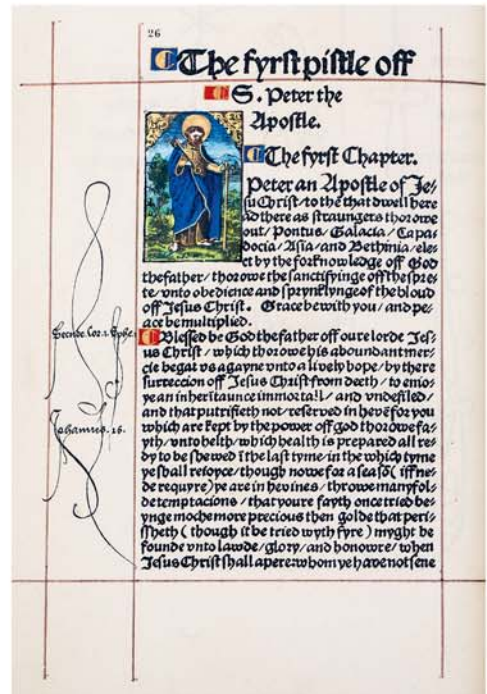 26
The fyrst pistle off
S. Peter the
Apostle.
The fyrst Chapter.
Peter an Apostle of Je⸗
su Christ/to the that dwell here
ad there as straungers thorowe
out/Pontus/Galacia/Capa⸗
docia/Asia/and Bethinia/ele⸗
ct by the forknowledge off God
the father/thorowe the sanctifyinge off the spre⸗
te/vnto obedience and sprynklynge of the bloud
off Jesus Christ. Grace be with you/and pe⸗
ace be multiplied.
Blessed be God the father off oure lorde Jes⸗
us Christ/which thorowe his aboundant mer⸗
cie begat vs agayne vnto a lively hope/by there
surreccion off Jesus Christ from deeth/to enio⸗
ye an inheritaunce immortall/and vndefiled/
and that putrifieth not/reserved in hevē for you
which are kept by the power off god thorowe fa⸗
yth/vnto helth/which health is prepared all re⸗
dy to be shewed ī the last tyme/in the which tyme
ye shall reioyce/though nowe for a seasō(iff ne⸗
de requyre)ye are in hevines/throwe manyfol⸗
de temptacions/that youre fayth once tried be⸗
ynge moche more precious then golde that peri⸗
ssheth(though it be tried wyth fyre) myght be
founde vnto lawde/glory/and honowre/when
Jesus Christ shall apere:whom ye have not sene
Johannis.16.